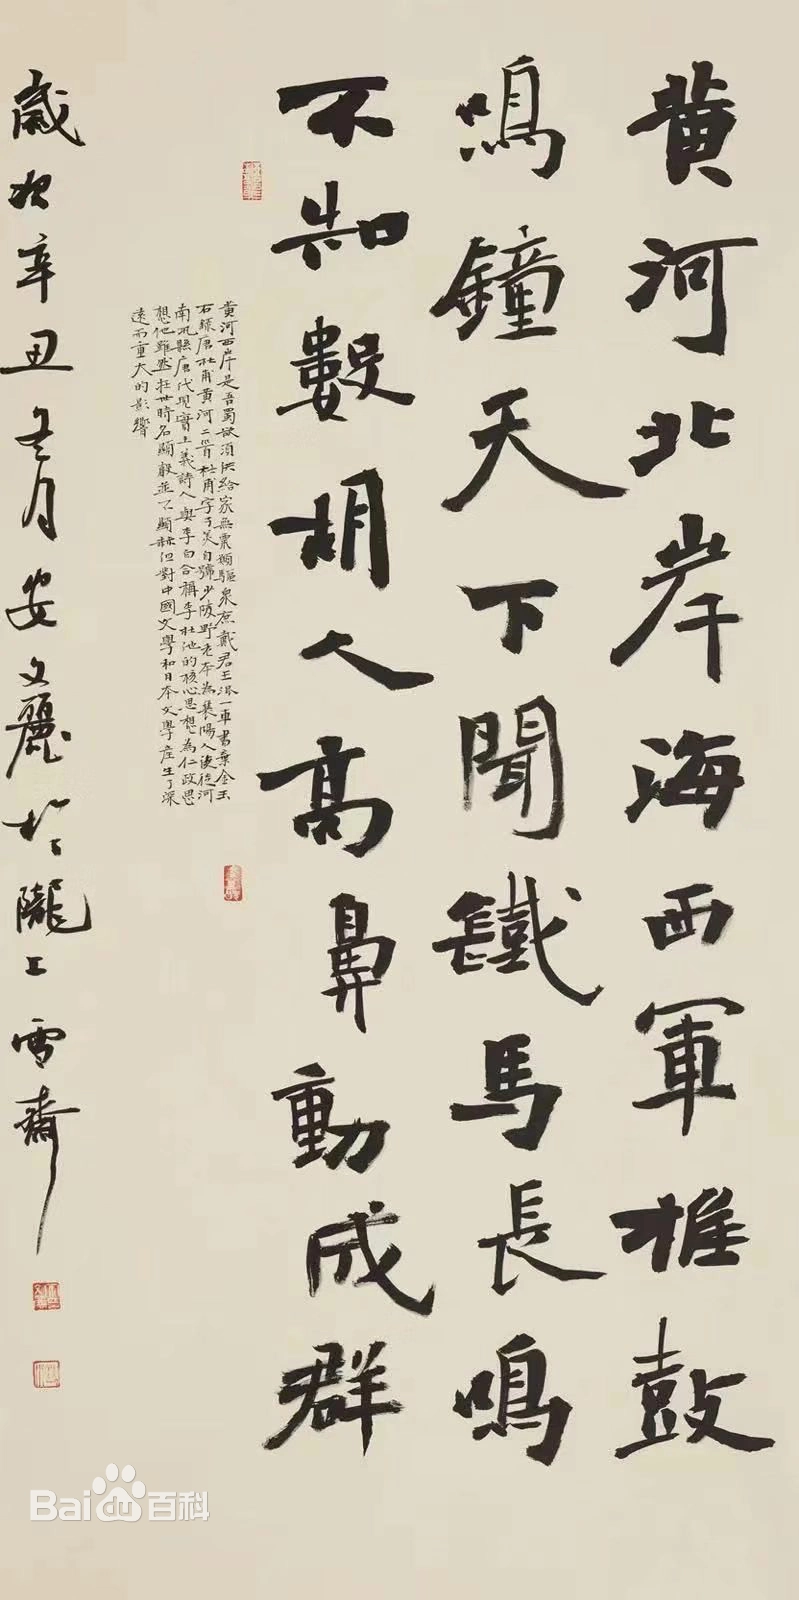 黄河北岸海西軍推鼓
鳴鐘天下聞鐵馬長鳴
不知數胡人高鼻動成群
黄河西岸是吾蜀欲須供給家無粟願驅衆庶戴君王混一車書棄金玉
右録唐杜甫黄河二首杜甫字子美自號少陵野老本為襄陽人後徙河
南巩縣唐代現實主義詩人與李白合稱李杜他的核心思想為仁政思
想他雖然在世時名顯聲並不顯赫但對中國文學和日本文學産生了深
遠而重大的影響
歲次辛丑月安文麗於隴上雪齋
Bai百科